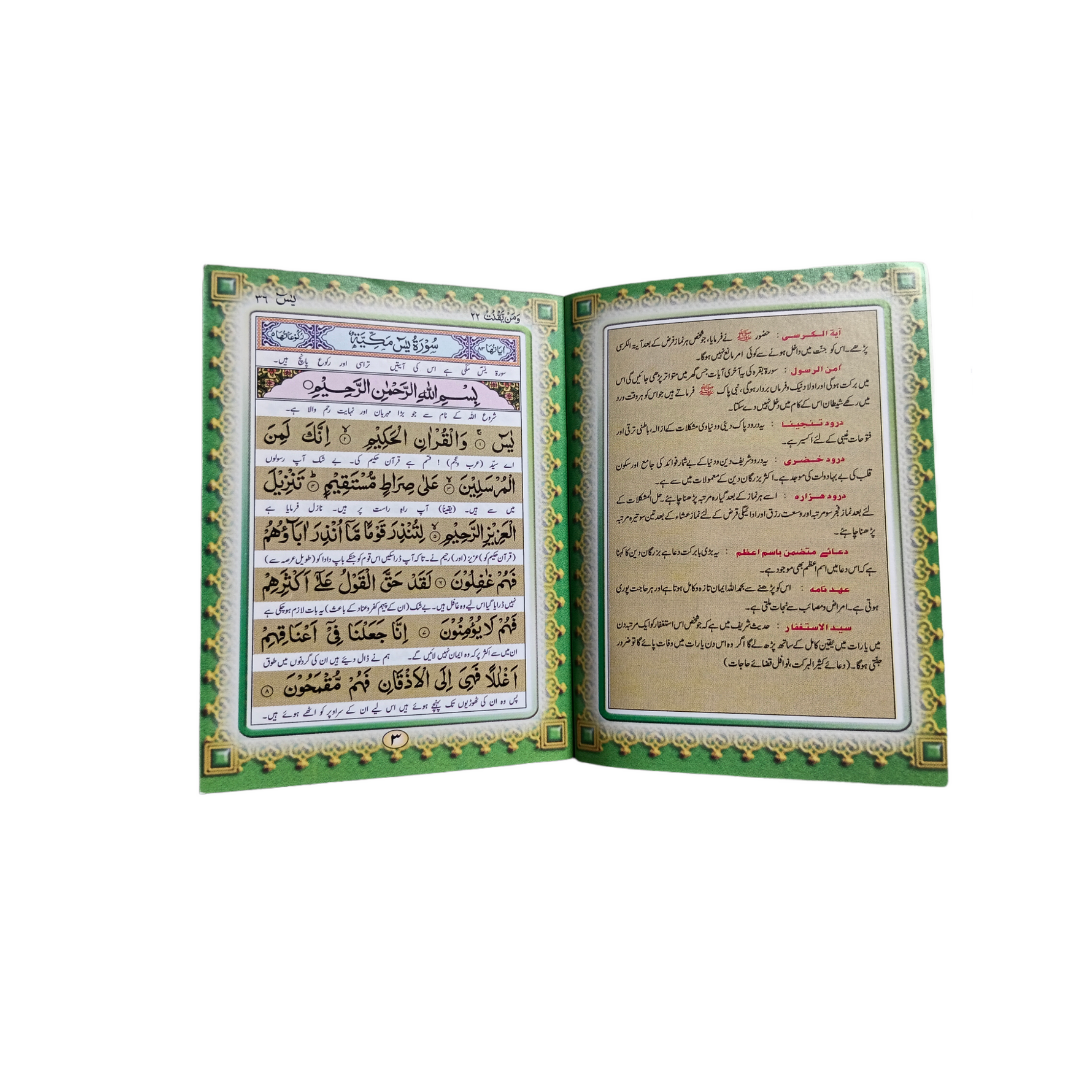 آیة الکرسی : حضور ﷺ نے فرمایا، جو شخص ہر نماز فرض کے بعد آیۃ الکرسی
پڑھے۔ اس کو جنت میں داخل ہونے سے کوئی امر مانع نہیں ہوگا۔
امن الرسول : سورۃ بقرہ کی یہ آخری آیات جس گھر میں متواتر پڑھی جائیں گی اس
میں برکت ہوگی اور اولاد نیک و فرماں بردار ہوگی، نبی پاک ﷺ فرماتے ہیں جو اس کو ہر وقت ورد
میں رکھے شیطان اس کے کام میں دخل نہیں دے سکتا۔
درود تنجینا : یہ درود پاک دینی و دنیاوی مشکلات کے ازالہ، باطنی ترقی اور
فتوحات غیبی کے لئے اکسیر ہے۔
درود خضری : یہ درود شریف دین و دنیا کے بے شمار فوائد کی جامع اور سکون
قلب کی بے بہا دولت کی موجد ہے۔ اکثر بزرگان دین کے معمولات میں سے ہے۔
درود ہزارہ : اسے ہر نماز کے بعد گیارہ مرتبہ پڑھنا چاہئے۔ حل المشکلات کے
لئے بعد نماز فجر سو مرتبہ اور وسعت رزق اور ادائیگی قرض کے لئے نماز عشاء کے بعد تین سو تیرہ مرتبہ
پڑھنا چاہئے۔
دعائے متضمن باسم اعظم : یہ بڑی بابرکت دعا ہے بزرگان دین کا کہنا
ہے کہ اس دعا میں اسم اعظم بھی موجود ہے۔
عہد نامہ : اس کو پڑھنے سے بحمد اللہ ایمان تازہ و کامل ہوتا ہے اور ہر حاجت پوری
ہوتی ہے۔ امراض و مصائب سے نجات ملتی ہے۔
سید الاستغفار : حدیث شریف میں ہے کہ جو شخص اس استغفار کو ایک مرتبہ دن
میں یا رات میں یقین کامل کے ساتھ پڑھ لے گا اگر وہ اس دن یا رات میں وفات پائے گا تو ضرور
جنتی ہوگا۔ (دعائے کثیر البرکت، نوافل قضائے حاجات)
وَمَنْ يَّقْنُتْ ٢٢
يٰسٓ ٣٦
اٰيَاتُهَا ٨٣ سُوْرَةُ يٰسٓ مَكِّيَّةٌ رُكُوْعَاتُهَا ٥
سورۃ یٰس مکی ہے اس کی آیتیں تراسی اور رکوع پانچ ہیں۔
بِسْمِ اللّٰهِ الرَّحْمٰنِ الرَّحِيْمِ
شروع اللہ کے نام سے جو بڑا مہربان اور نہایت رحم والا ہے۔
يٰسٓ ۚ﴿١﴾ وَالْقُرْاٰنِ الْحَكِيْمِ ۙ﴿٢﴾ اِنَّكَ لَمِنَ
اے سیّد (عرب و عجم) ! قسم ہے قرآن حکیم کی۔ بے شک آپ رسولوں
الْمُرْسَلِيْنَ ۙ﴿٣﴾ عَلٰى صِرَاطٍ مُّسْتَقِيْمٍ ؕ﴿٤﴾ تَنْزِيْلَ
میں سے ہیں۔ (یقینًا) آپ راہ راست پر ہیں۔ نازل فرمایا ہے
الْعَزِيْزِ الرَّحِيْمِ ۙ﴿٥﴾ لِتُنْذِرَ قَوْمًا مَّاۤ اُنْذِرَ اٰبَآؤُهُمْ
(قرآن حکیم کو) عزیز (اور) رحیم نے۔ تاکہ آپ ڈرائیں اس قوم کو جنکے باپ دادا کو (طویل عرصہ سے)
فَهُمْ غٰفِلُوْنَ ﴿٦﴾ لَقَدْ حَقَّ الْقَوْلُ عَلٰٓى اَكْثَرِهِمْ
نہیں ڈرایا گیا اس لیے وہ غافل ہیں۔ بے شک (ان کے پیہم کفر و عناد کے باعث) یہ بات لازم ہو چکی ہے
فَهُمْ لَا يُؤْمِنُوْنَ ﴿٧﴾ اِنَّا جَعَلْنَا فِيْٓ اَعْنَاقِهِمْ
ان میں سے اکثر پر کہ وہ ایمان نہیں لائیں گے۔ ہم نے ڈال دیئے ہیں ان کی گردنوں میں طوق
اَغْلٰلًا فَهِىَ اِلَى الْاَذْقَانِ فَهُمْ مُّقْمَحُوْنَ ﴿٨﴾
پس وہ ان کی ٹھوڑیوں تک پہنچے ہوئے ہیں اس لیے ان کے سر اوپر کو اٹھے ہوئے ہیں۔
٣